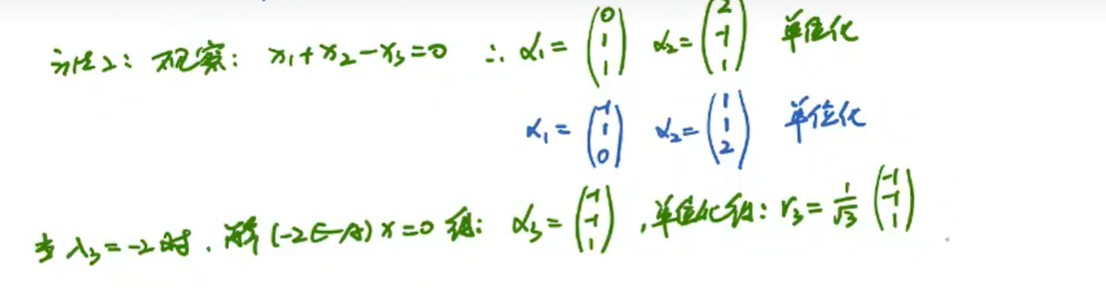 方法2: 观察: x₁+x₂-x₃=0 ∴ α₁=(0 1 1) α₂=(2 -1 1) 单位化
α₁=(-1 1 0) α₂=(1 1 2) 单位化
当 λ₃=-2时, 解(-2E-A)x=0 得: α₃=(-1 -1 1), 单位化得: r₃=1/√3 (-1 -1 1)